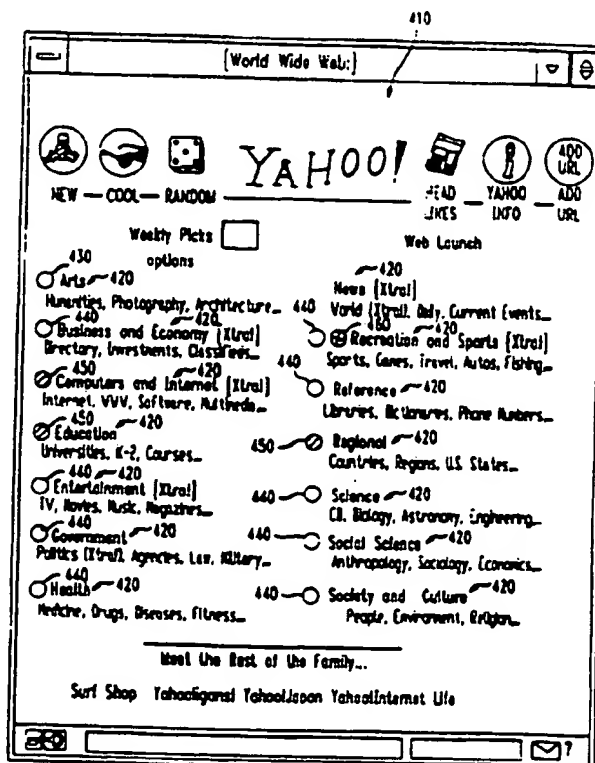 410
[World Wide Web:]
YAHOO!
NEW — COOL — RANDOM
HEAD LIKES
YAHOO INFO
ADD URL
ADD URL
Weekly Picks
options
Web Launch
430
Arts 420
Humanities, Photography, Architecture...
440
Business and Economy [Xtra!] 420
Directory, Investments, Classifieds...
450
Computers and Internet [Xtra!] 420
Internet, WWW, Software, Multimedia...
450
Education 420
Universities, K-2, Courses...
440 420
Entertainment [Xtra!]
TV, Movies, Music, Magazines...
440
Government 420
Politics [Xtra!], Agencies, Law, Military...
440
Health 420
Medicine, Drugs, Diseases, Fitness...
420
News [Xtra!]
World [Xtra!], Daily, Current Events...
440 460 420
Recreation and Sports [Xtra!]
Sports, Games, Travel, Autos, Fishing...
440
Reference 420
Libraries, Dictionaries, Phone Numbers...
450 Regional 420
Countries, Regions, U.S. States...
440 Science 420
CS, Biology, Astronomy, Engineering...
440 Social Science 420
Anthropology, Sociology, Economics...
440 Society and Culture 420
People, Environment, Religion...
Meet the Rest of the Family...
Surf Shop Yahooligans! Yahoo!Japan Yahoo!Internet Life
?